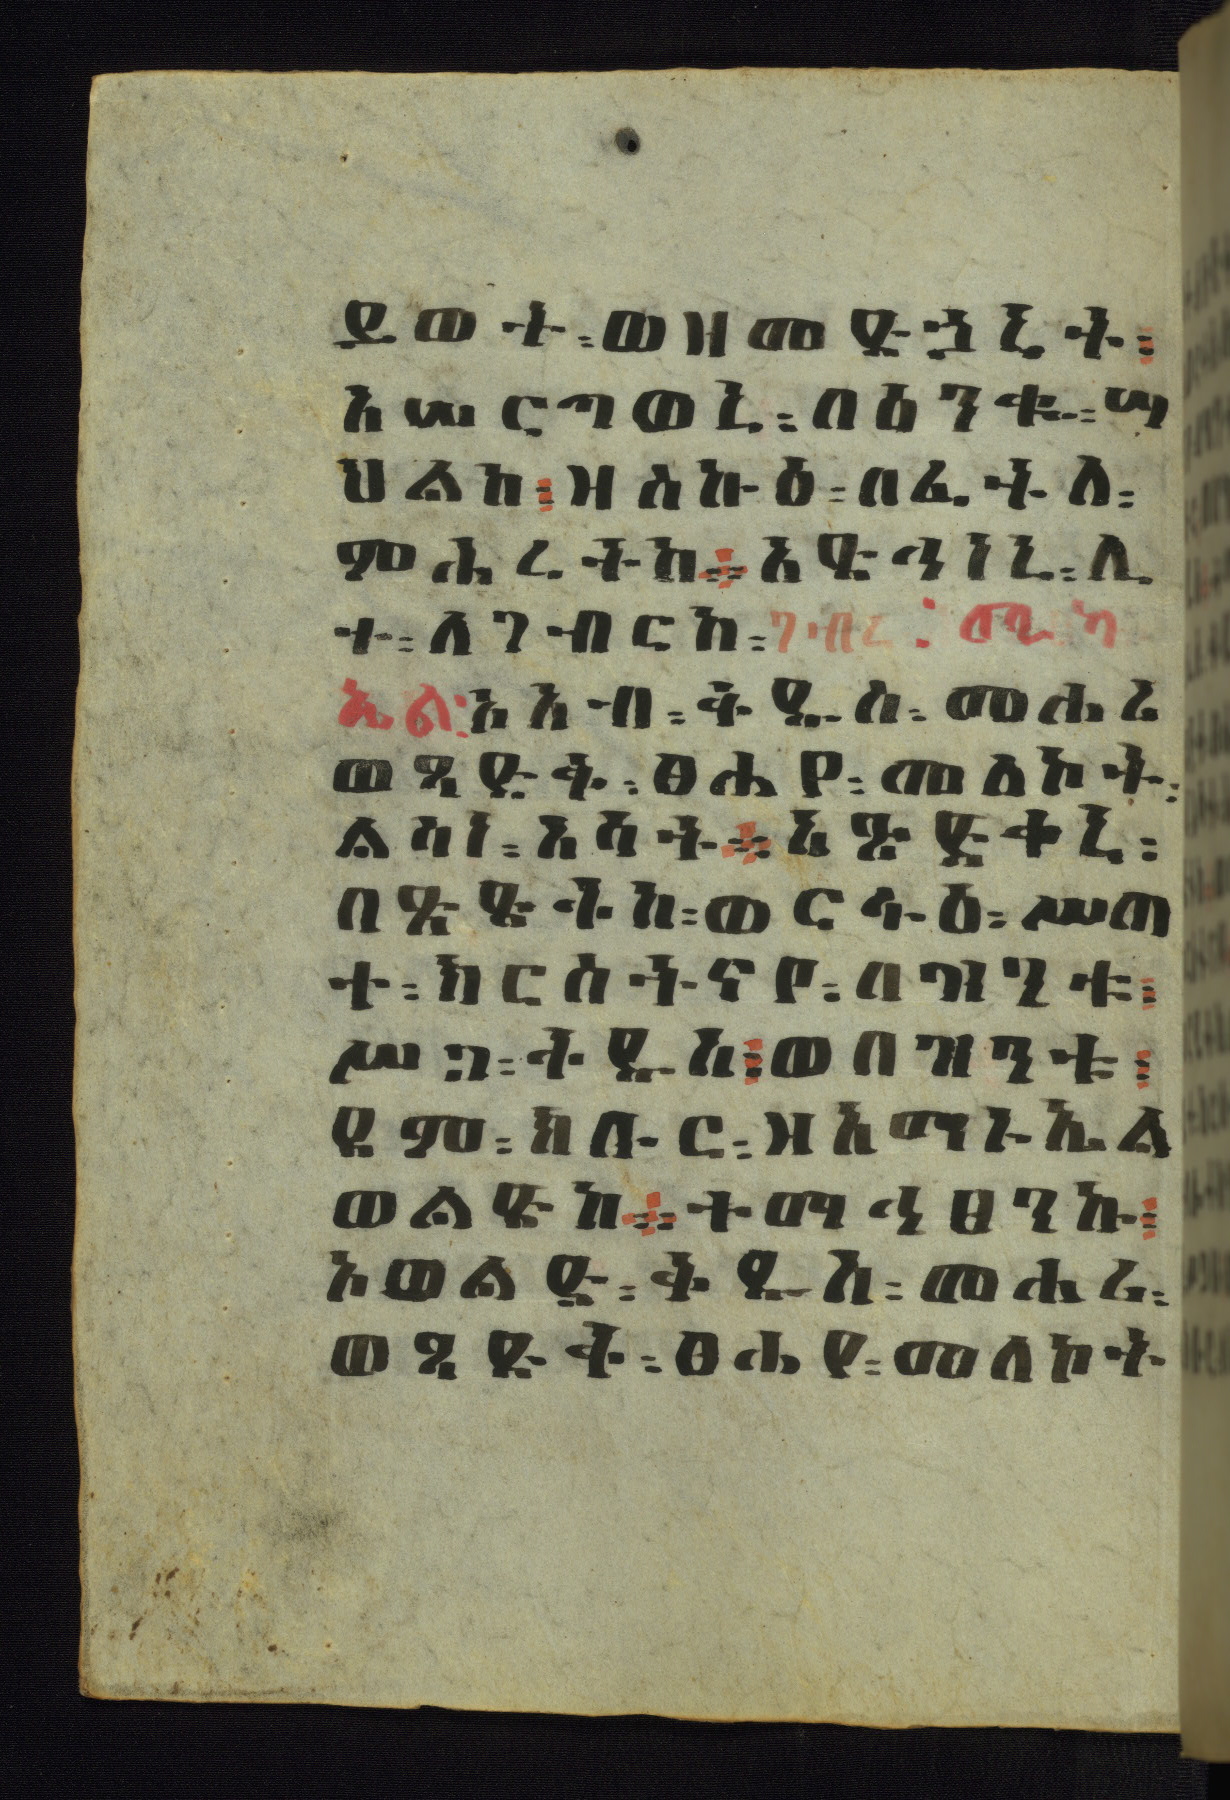 ይወት፡ወዘመድኃኒት፤
አሠርግወኒ፡በዕንቈ፡ሣ
ህልከ፤ዘስኩዕ፡በፈትለ፡
ምሕረትከ።አድኅነኒ፡ሊ
ተ፡ለገብርከ፡ገብረ፡ሚካ
ኤል፡አአብ፡ቅዱስ፡መሐሪ
ወጻድቅ፡ፀሐየ፡መለኮት፡
ልሳነ፡እሳት።አጽድቀኒ፡
በጽድቅከ፡ወርፋዕ፡ሥጠ
ተ፡ክርስትናየ፡በዝንቱ፤
ሥጋ፡ቅዱስ፤ወበዝንቱ፤
ደም፡ክቡር፡ዘአማኑኤል
ወልድከ።ተማኅፀንኩ፤
አወልድ፡ቅዱስ፡መሐሪ፡
ወጻድቅ፡ፀሐየ፡መለኮት